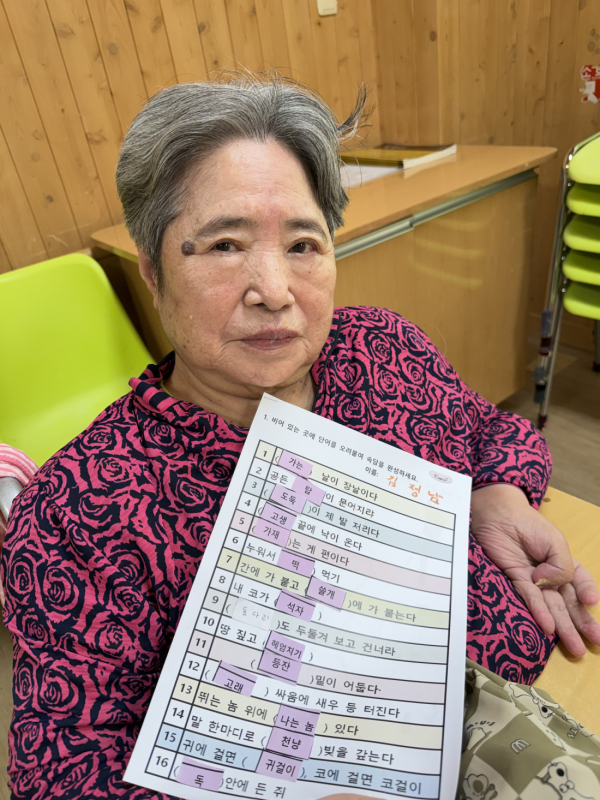 1. 비어 있는 곳에 단어를 오려붙여 속담을 완성하세요.
이름: 김정남
1 ( 가는 ) 날이 장날이다
2 공든 ( 탑 )이 무너지랴
3 ( 도둑 )이 제 발 저리다
4 ( 고생 ) 끝에 낙이 온다
5 ( 가재 )는 게 편이다
6 누워서 ( 떡 ) 먹기
7 간에 가 붙고 ( 쓸개 )에 가 붙는다
8 내 코가 ( 석자 )
9 ( 돌다리 )도 두들겨 보고 건너라
10 땅 짚고 ( 헤엄치기 )
11 ( 등잔 )밑이 어둡다
12 ( 고래 ) 싸움에 새우 등 터진다
13 뛰는 놈 위에 ( 나는 놈 ) 있다
14 말 한마디로 ( 천냥 )빚을 갚는다
15 귀에 걸면 ( 귀걸이 ), 코에 걸면 코걸이
16 ( 독 )안에 든 쥐